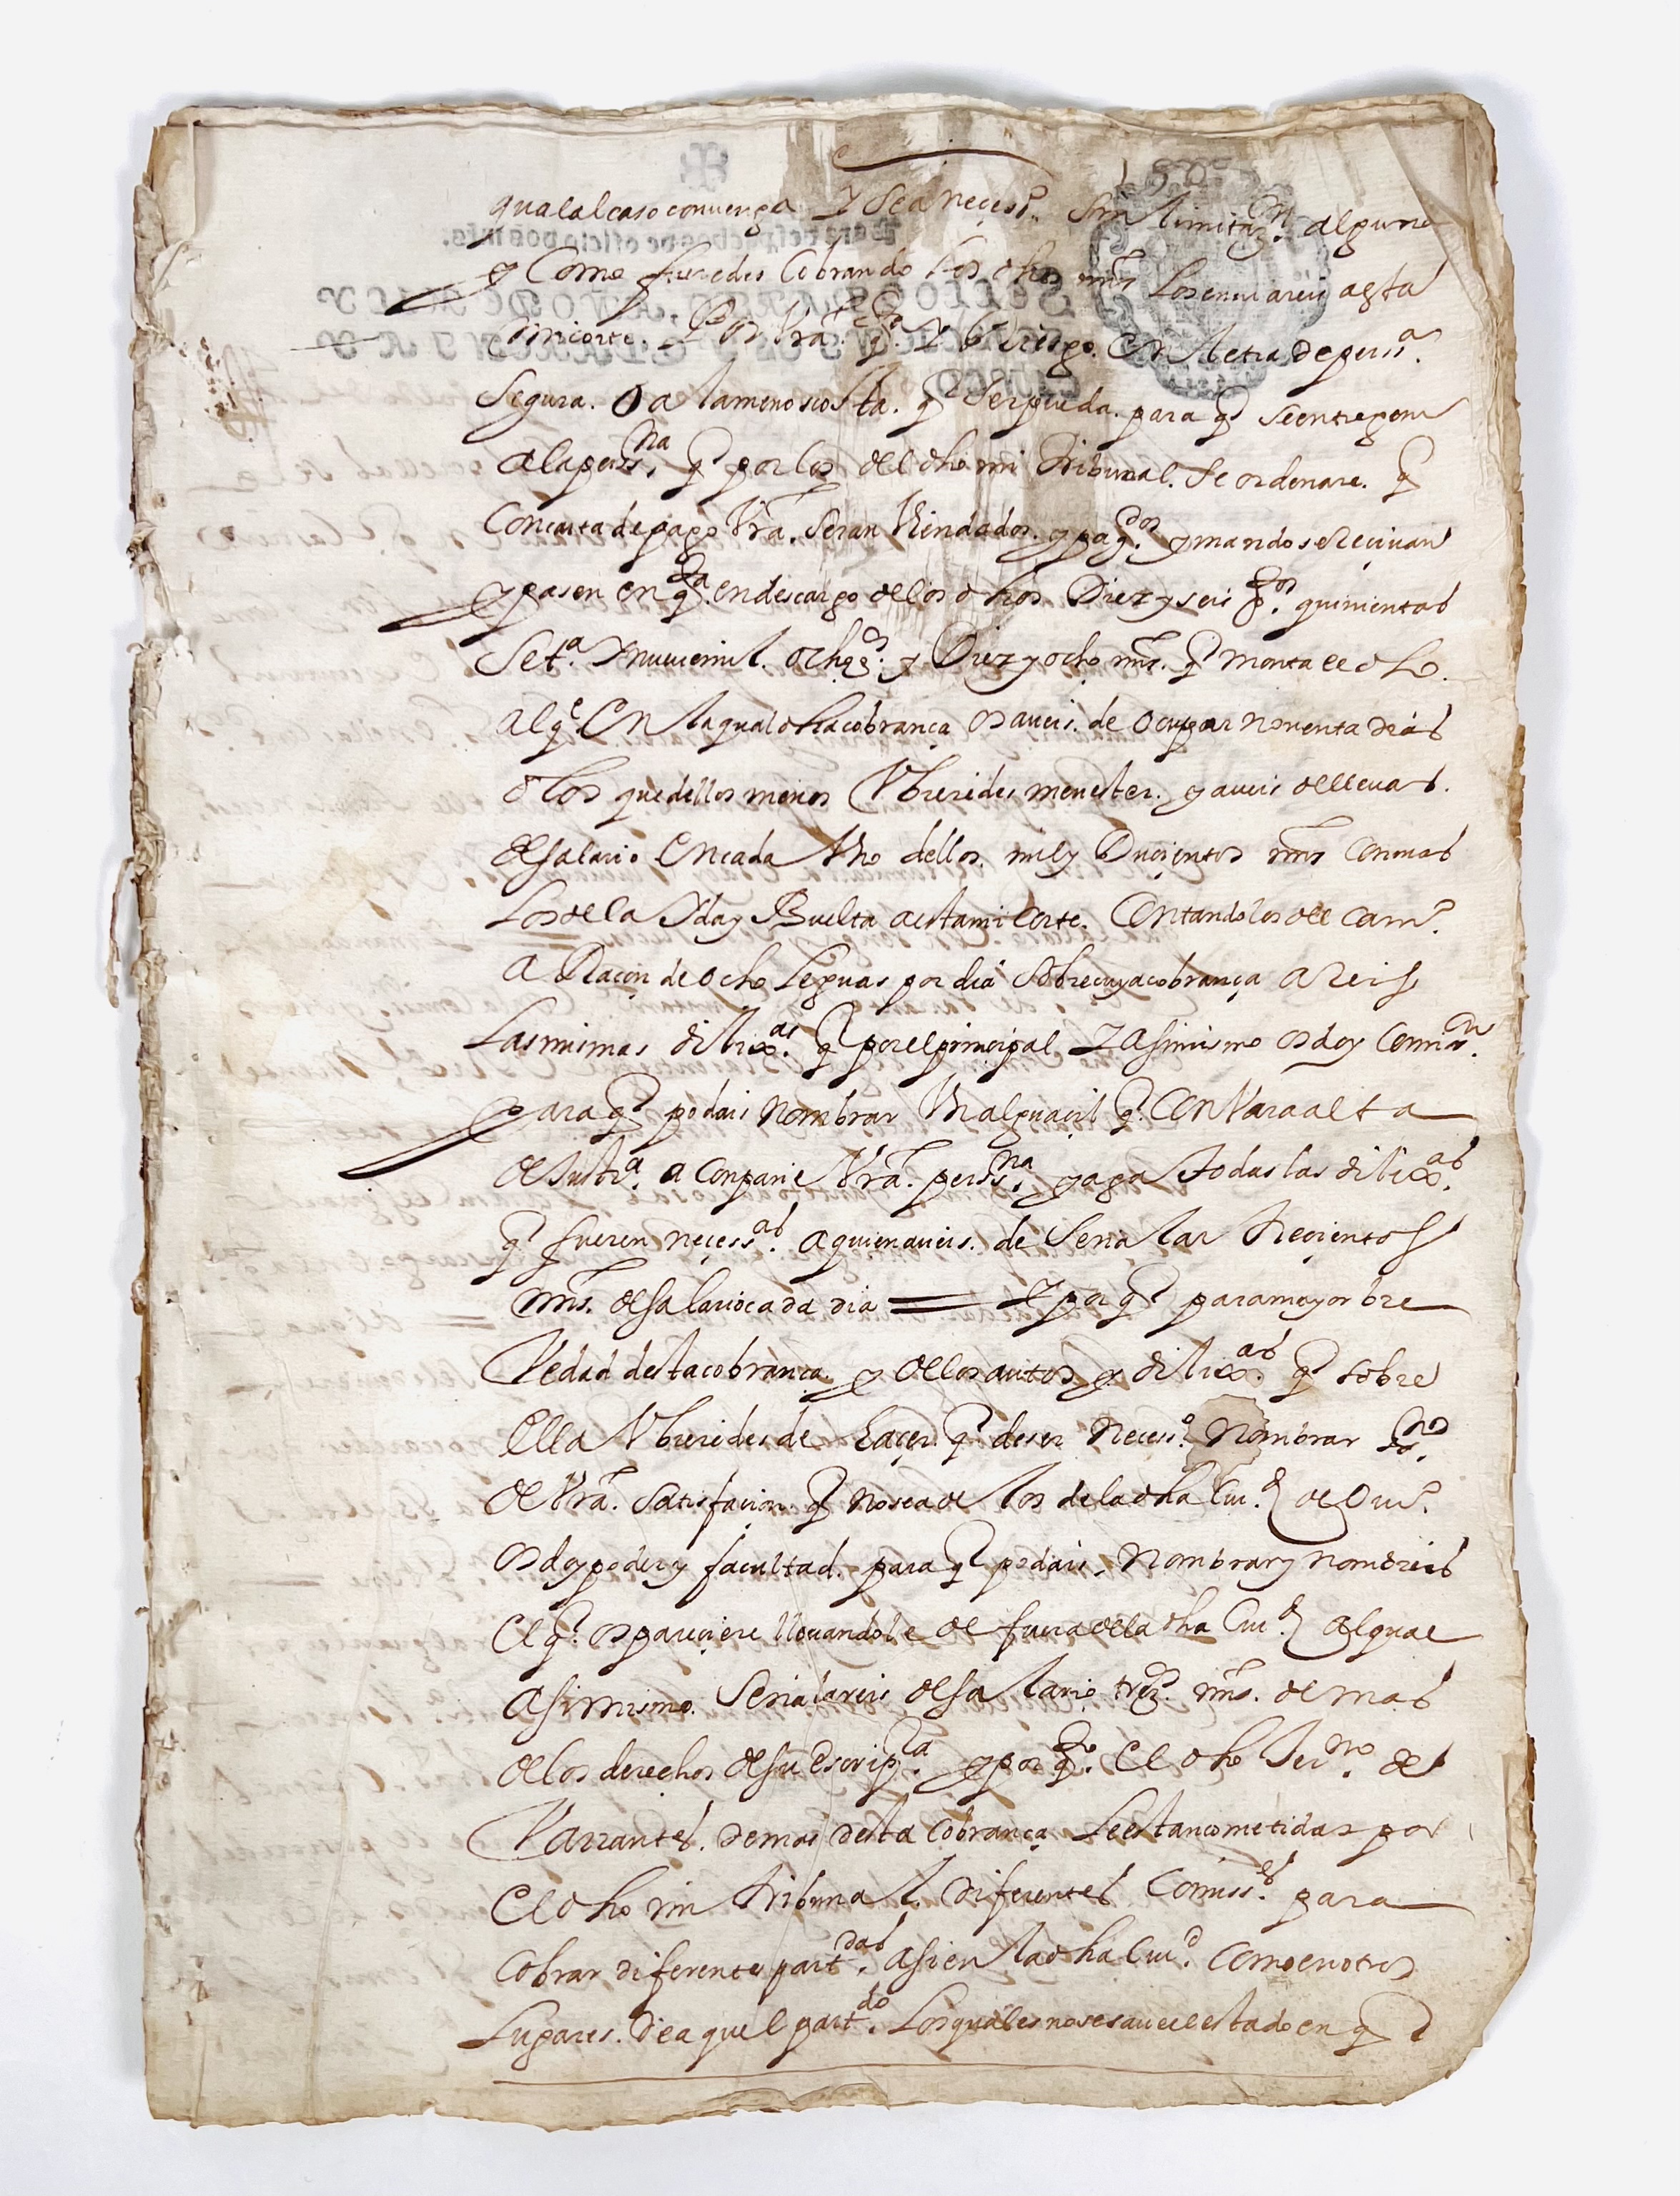 qual al caso conuenga Y Sea neçess.o Sin limitaz.on alguna
y Como fueredes Cobrando los dhos mrs Los enuiareis a esta
mi corte. Por Vra. q.ta Y Riesgo. En letra de perss.a
Segura. O a la menos costa. q.e Ser pueda. para q.e se entreguen
a la perss.na q.e por los del dho mi tribunal. Se ordenare. q.e
Con carta de pago Vra. Seran Vien dados. y pag.dos y mando se Reciuan
y pasen en q.ta en descargo de los dhos Diez y seis q.os quinientas
Set.a Y nueue mil. ochoz.os y Diez y ocho mrs. q.e monta el dho.
alq.e En la qual dha cobrança os aueis. de ocupar nouenta dias
o los que dellos menos Vbieredes menester. y aueis de lleuar.
de salario En cada Vno dellos. mil y Ducientos mrs Con mas
Los de la Yda y Buelta a esta mi Corte. Contandolos de el cam.o
a Raçon de ocho leguas por dia Sobre cuya cobrança areis
Las mismas dilix.as q.e por el principal Y Asimismo os doy Comis.on
para q.e podais nombrar Vn alguaçil q.e Con Vara alta
de Justi.a aconpañe Vra. perss.na y aga todas las dilix.as
q.e fueren neçess.as a quien aueis. de Señalar treçientos
mrs. de salario cada dia = Y por q.e para mayor bre
Vedad desta cobrança y de los autos y dilix.as q.e sobre
Ella Vbieredes de haçer. q.e de ser neçess.o nombrar ss.no
de Vra. satisfaçion. q.e no sea de los de la dha Ciu.d de Oui.o
os doy poder y facultad. para q.e podais. nombrar y nombreis
el q.e os pareçiere lleuandole de fuera de la dha Ciu.d al qual
asimismo. Señalareis de salario trez.os mrs. de mas
de los derechos de su escrip.ta y por q.to el dho Ser.no de
Varrantes. demas desta Cobrança le estan cometidas por
el dho mi tribunal. diferentes Comiss.es para
Cobrar diferentes part.das asi en la dha Ciu.d Como en otros
Lugares. de aquel part.do Los quales no se saue el estado en q.e